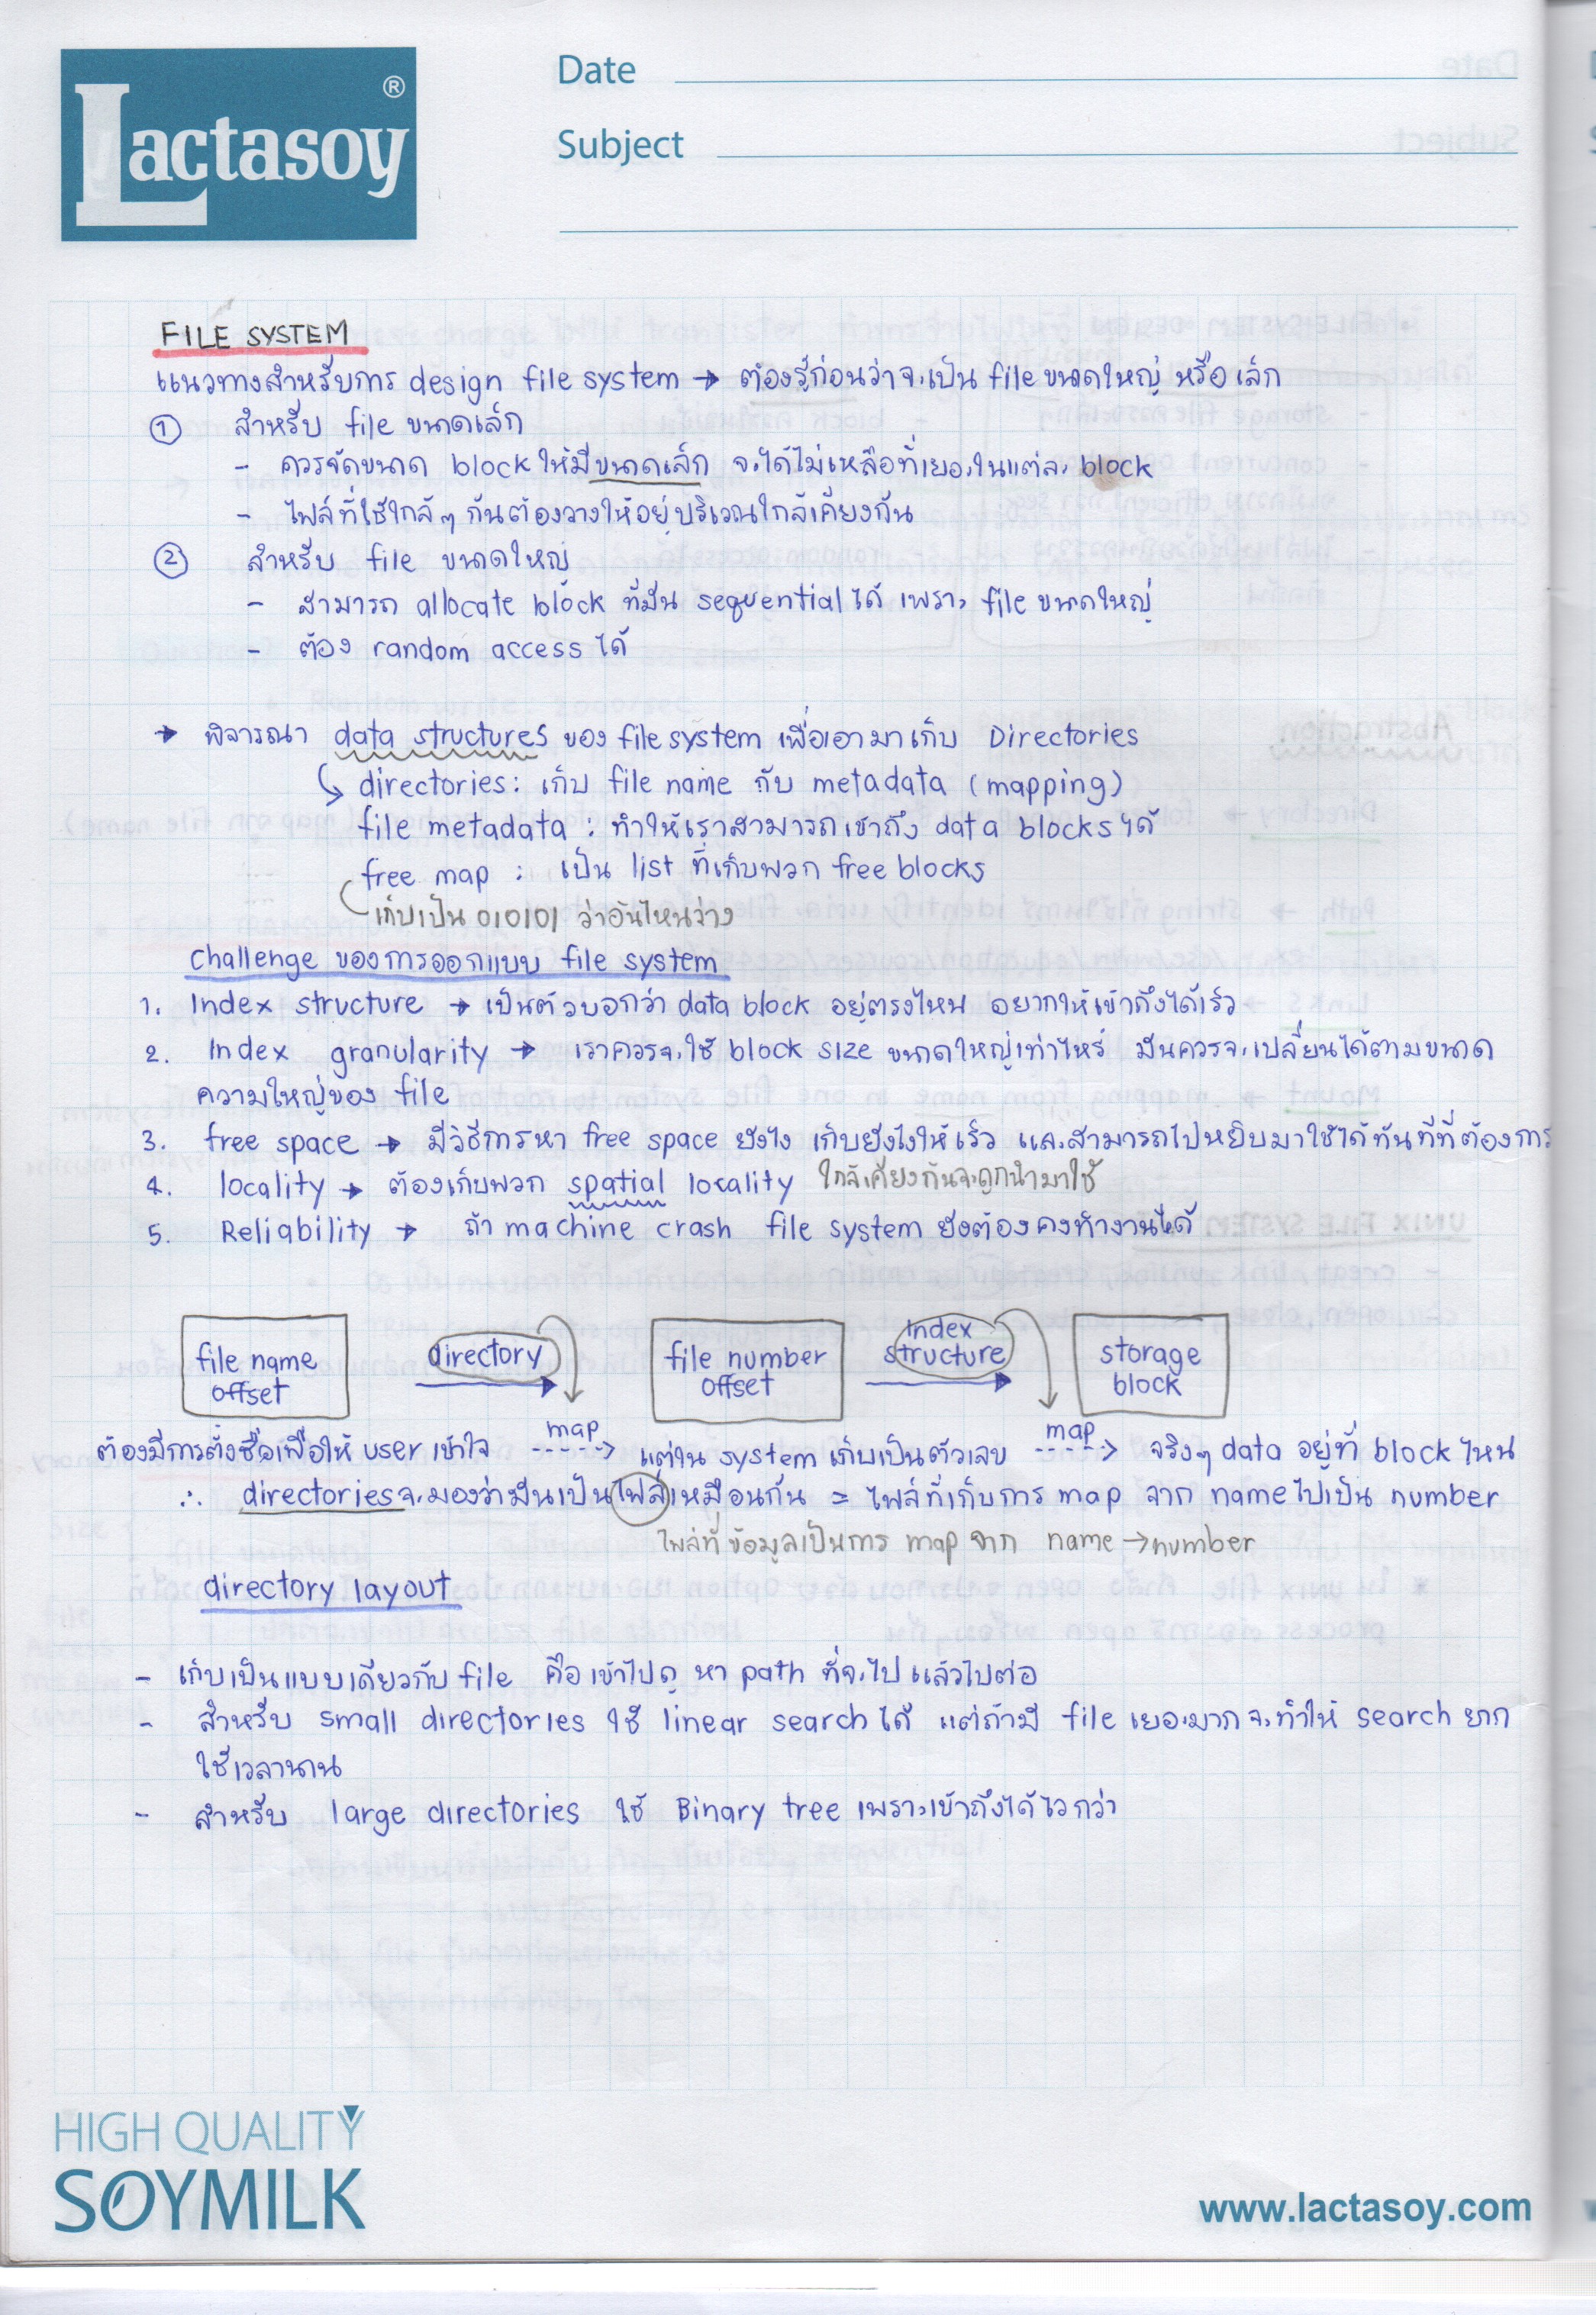 Lactasoy ®
Date
Subject
FILE SYSTEM
แนวทางสำหรับการ design file system → ต้องรู้ก่อนว่าจะเป็น file ขนาดใหญ่ หรือ เล็ก
① สำหรับ file ขนาดเล็ก
- ควรจัดขนาด block ให้มีขนาดเล็ก จะได้ไม่เหลือที่เยอะในแต่ละ block
- ไฟล์ที่ใช้ใกล้ๆ กันต้องวางให้อยู่บริเวณใกล้เคียงกัน
② สำหรับ file ขนาดใหญ่
- สามารถ allocate block ที่มัน sequential ได้ เพราะ file ขนาดใหญ่
- ต้อง random access ได้
→ พิจารณา data structures ของ file system เพื่อเอามาเก็บ Directories
directories: เก็บ file name กับ metadata (mapping)
file metadata : ทำให้เราสามารถเข้าถึง data blocks ได้
free map : เป็น list ที่เก็บพวก free blocks
เก็บเป็น 010101 ว่าอันไหนว่าง
Challenge ของการออกแบบ file system
1. Index structure → เป็นตัวบอกว่า data block อยู่ตรงไหน อยากให้เข้าถึงได้เร็ว
2. Index granularity → เราควรจะใช้ block size ขนาดใหญ่เท่าไหร่ มันควรจะเปลี่ยนได้ตามขนาด
ความใหญ่ของ file
3. free space → มีวิธีการหา free space ยังไง เก็บยังไงให้เร็ว และสามารถไปหยิบมาใช้ได้ทันทีที่ต้องการ
4. locality → ต้องเก็บพวก spatial locality ใกล้เคียงกันจะถูกนำมาใช้
5. Reliability → ถ้า machine crash file system ยังต้องคงทำงานได้
file name offset directory file number offset Index structure storage block
ต้องมีการตั้งชื่อเพื่อให้ user เข้าใจ map แต่ใน system เก็บเป็นตัวเลข map จริงๆ data อยู่ที่ block ไหน
∴ directories จะมองว่ามันเป็นไฟล์เหมือนกัน = ไฟล์ที่เก็บการ map จาก name ไปเป็น number
ไฟล์ที่ข้อมูลเป็นการ map จาก name → number
directory layout
- เก็บเป็นแบบเดียวกับ file คือ เข้าไปดู หา path ที่จะไป แล้วไปต่อ
- สำหรับ small directories ใช้ linear search ได้ แต่ถ้ามี file เยอะมาก จะทำให้ search ยาก
ใช้เวลานาน
- สำหรับ large directories ใช้ Binary tree เพราะเข้าถึงได้ไวกว่า
HIGH QUALITY
SOYMILK
www.lactasoy.com